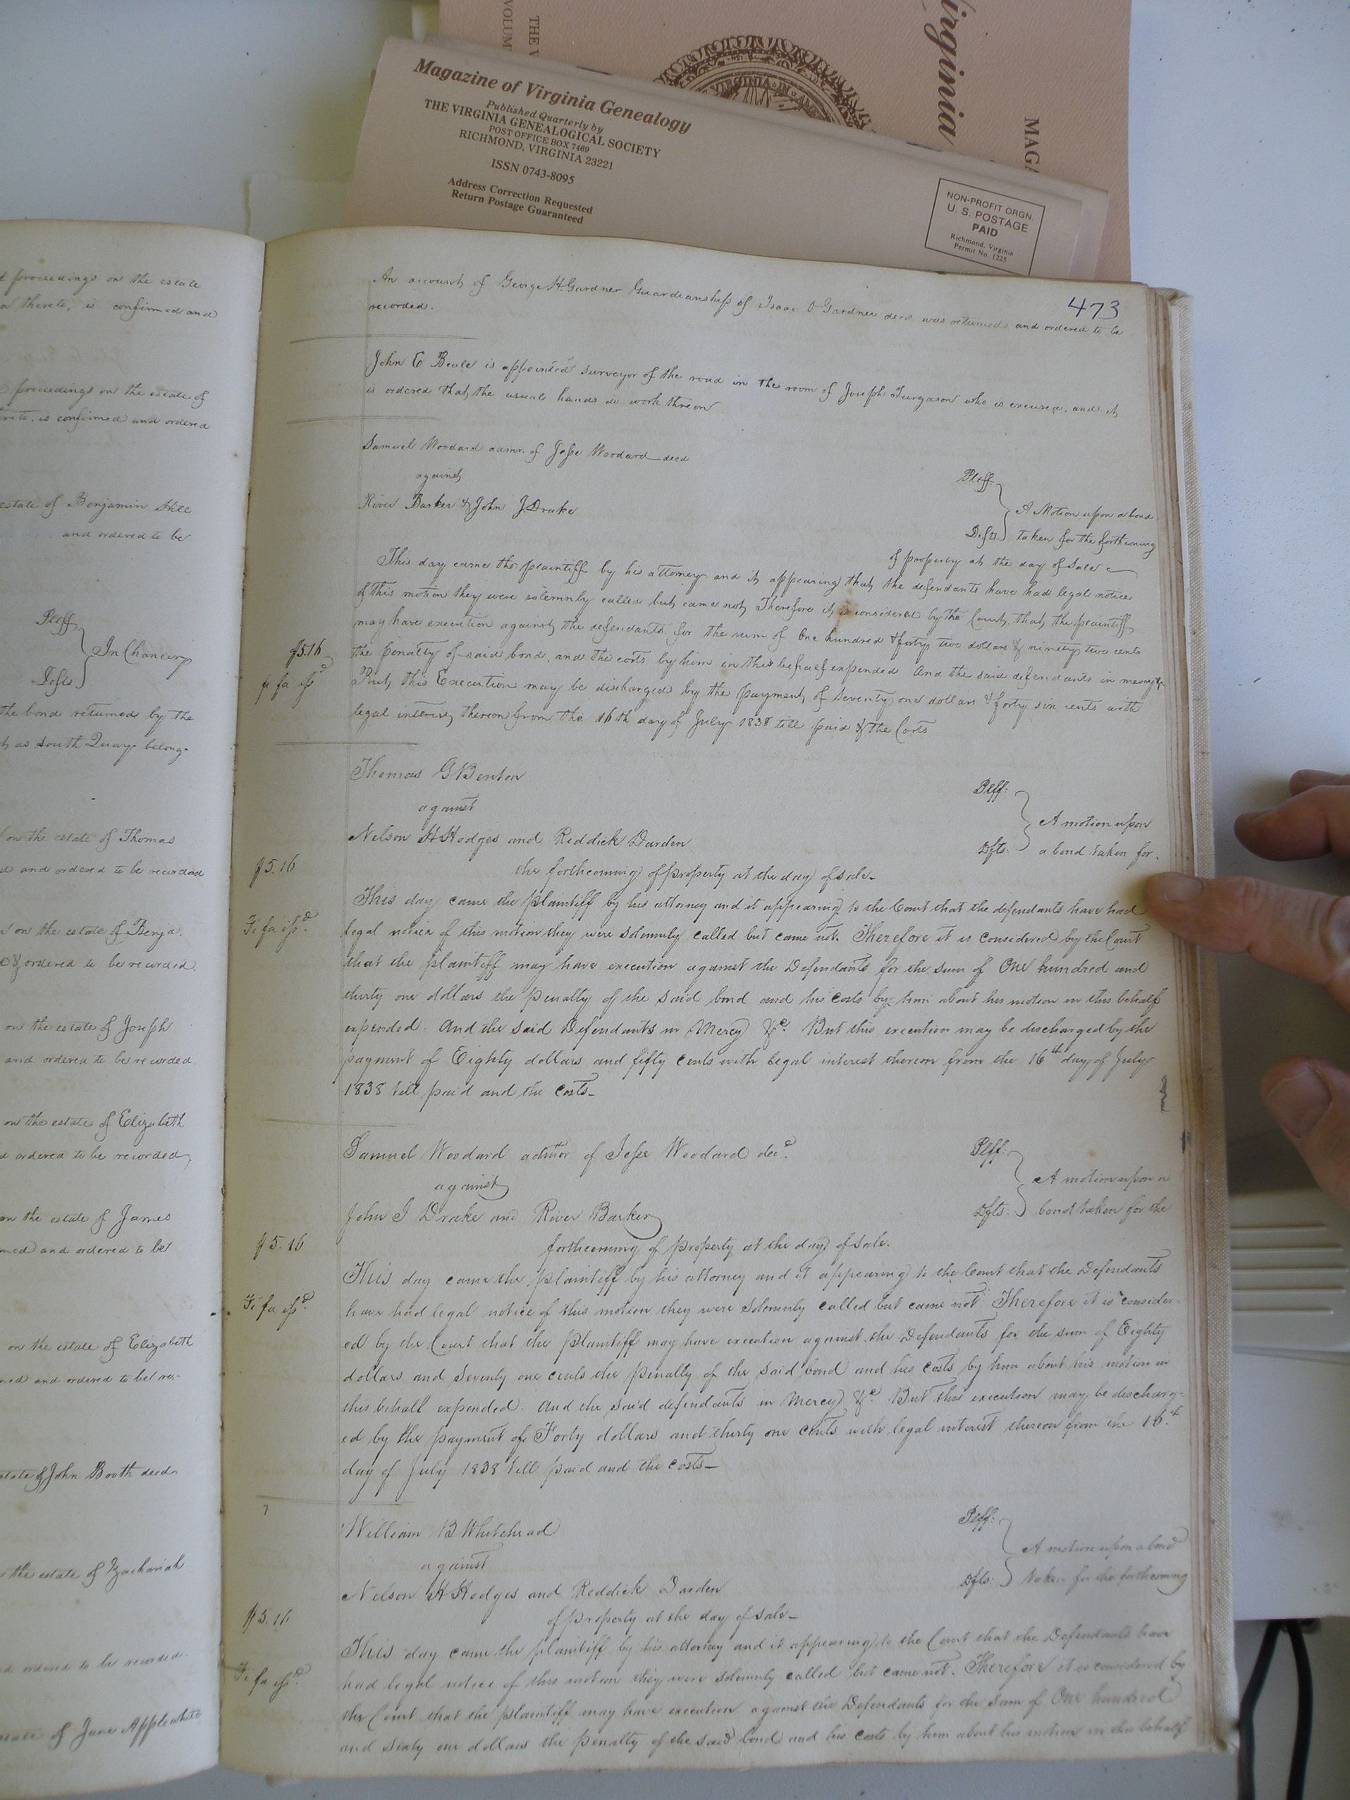 THE V
VOLUM
Virginia
MAGA
VIRGINIA
Magazine of Virginia Genealogy
Published Quarterly by
THE VIRGINIA GENEALOGICAL SOCIETY
POST OFFICE BOX 7469
RICHMOND, VIRGINIA 23221
ISSN 0743-8095
Address Correction Requested
Return Postage Guaranteed
NON-PROFIT ORGN.
U.S. POSTAGE
PAID
Richmond, Virginia
Permit No. 1225
proceedings on the estate
thereto, is confirmed and
proceedings on the estate of
is confirmed and ordered
estate of Benjamin
and ordered to be
Plff
In Chancery
Defts
the bond returned by the
as South Quay belong-
on the estate of Thomas
and ordered to be recorded
on the estate of Benja.
& ordered to be recorded
on the estate of Joseph
and ordered to be recorded
on the estate of Elizabeth
ordered to be recorded
on the estate of James
and ordered to be
on the estate of Elizabeth
and ordered to be rec-
estate of John Booth decd
the estate of Zachariah
ordered to be recorded
estate of Jane Applewhite
473
An account of George H. Gardner Guardianship of Isaac O Gardner decd was returned and ordered to be
recorded.
John E Beale is appointed surveyor of the road in the room of Joseph Furgason who is excused, and it
is ordered that the usual hands do work thereon
Samuel Woodard admr. of Jesse Woodard decd
Plff
against
River Barker & John J. Drake
A Motion upon a bond
Defts
taken for the forthcoming
of property at the day of Sale
This day came the plaintiff by his attorney and it appearing that the defendants have had legal notice
of this motion they were solemnly called but came not, Therefore it is considered by the Court, that the plaintiff
may have execution against the defendants for the sum of One hundred & forty two dollars & ninety two cents
$5.16
the penalty of said bond, and the costs by him in this behalf expended And the said defendants in mercy &c
fi fa issd
But, this Execution may be discharged by the payment, of Seventy one dollars & forty six cents with
legal interest thereon from the 16th day of July 1838 till paid & the Costs
Thomas G Benton
Plff.
against
A motion upon
Nelson H Hodges and Reddick Darden
Dfts.
a bond taken for
$5.16
the forthcoming of property at the day of sale-
This day came the plaintiff by his attorney and it appearing to the Court that the defendants have had
Fi fa issd.
legal notice of this motion they were solemnly called but came not. Therefore it is considered by the Court
that the plaintiff may have execution against the Defendants for the sum of One hundred and
thirty one dollars the penalty of the said bond and his costs by him about his motion in this behalf
expended. And the said Defendants in Mercy &c. But this execution may be discharged by the
payment of Eighty dollars and fifty cents with legal interest thereon from the 16th day of July
1838 till paid and the costs-
Samuel Woodard admor of Jesse Woodard decd.
Plff.
against
A motion upon a
John J Drake and River Barker
Dfts.
bond taken for the
$5.16
forthcoming of property at the day of sale.
This day came the plaintiff by his attorney and it appearing to the Court that the Defendants
Fi fa issd.
have had legal notice of this motion they were solemnly called but came not Therefore it is consider-
ed by the Court that the plaintiff may have execution against the Defendants for the sum of Eighty
dollars and Seventy one cents the penalty of the said bond and his costs by him about his motion in
this behalf expended. And the said defendants in Mercy &c. But this execution may be discharg-
ed by the payment of Forty dollars and thirty one cents with legal interest thereon from the 16.th
day of July 1838 till paid and the costs-
William B Whitehead
Plff.
against
A motion upon a bond
Nelson H Hodges and Reddick Darden
Dfts.
taken for the forthcoming
$5.16
of property at the day of sale-
This day came the plaintiff by his attorney and it appearing to the Court that the Defendants have
Fi fa issd.
had legal notice of this motion they were solemnly called but came not. Therefore it is considered by
the Court that the plaintiff may have execution against the Defendants for the sum of One hundred
and sixty one dollars the penalty of the said bond and his costs by him about his motion in this behalf